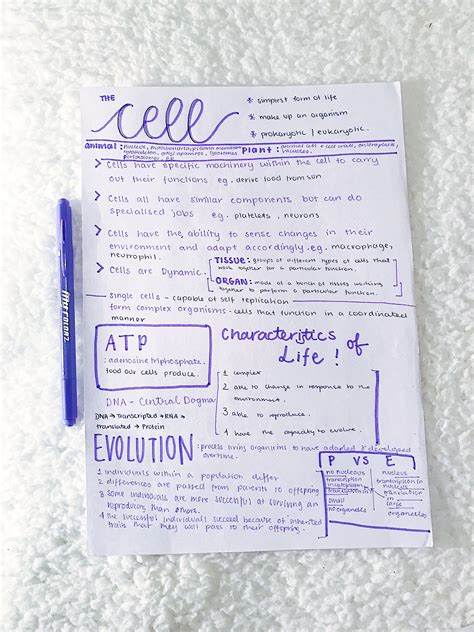 THE
cell
* simplest form of life
* make up an organism
* prokaryotic / eukaryotic.
animal: nucleus, mitochondria, plasma membrane
Plant: animal cell + cell wall, chloroplasts,
vacuoles.
> Cells have specific machinery within the cell to carry
out their functions eg. derive food from sun
> Cells all have similar components but can do
specialised jobs eg. platelets, neurons
> Cells have the ability to sense changes in their
environment and adapt accordingly. eg. macrophage,
neutrophil.
> Cells are Dynamic.
TISSUE: groups of different types of cells that
work together for a particular function.
ORGAN: made of a bunch of tissues working
together to perform a particular function.
Single cells - capable of self replication
form complex organisms - cells that function in a coordinated
manner
ATP
: adenosine triphosphate.
food our cells produce.
Characteristics of
Life !
1 complex
2 able to change in response to the
environment.
3 able to reproduce.
4 have the capacity to evolve.
DNA - Central Dogma
DNA → Transcripted → RNA →
translated → Protein
EVOLUTION : process living organisms to have adapted & developed
overtime.
1 individuals within a population differ
2 differences are passed from parents to offspring
3 some individuals are more successful at surviving an
reproducing than others.
4 the successful individuals succeed because of inherited
traits that they will pass to their offspring.
P VS E
no nucleous
nucleus
transcription
transcription in
nucleus
translation
in
small
large
no organelles
organelles